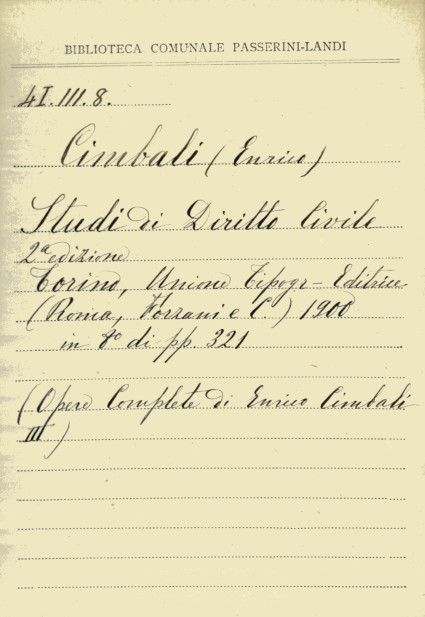 BIBLIOTECA COMUNALE PASSERINI-LANDI
4I.III.8.
Cimbali (Enrico)
Studi di Diritto Civile
2ª edizione
Torino, Unione Tipogr-Editrice
(Roma, Forzani e C.) 1900
in 8º di pp. 321
(Opere Complete di Enrico Cimbali
III)